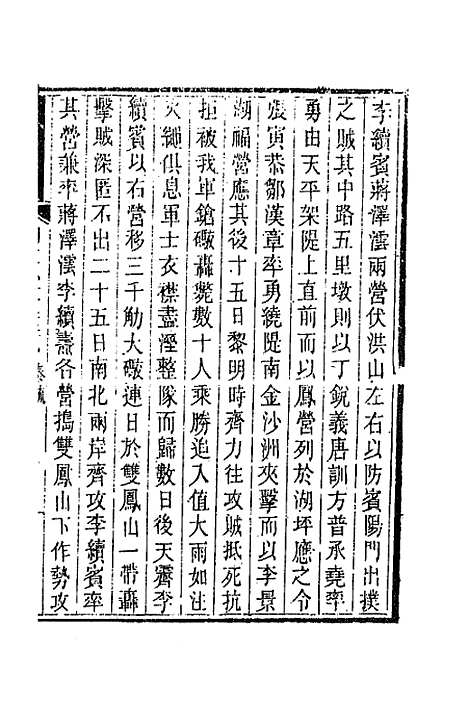 李續賓蔣澤澐兩營伏洪山左右以防賓陽門出撲
之賊其中路五里墩則以丁銳義唐訓方普承堯率
勇由天平架隄上直前而以鳳營列於湖坪應之令
張寅恭鄒漢章率勇繞隄南金沙洲夾擊而以李景
湖福營應其後十五日黎明時齊力往攻賊抵死抗
拒被我車鎗礮轟斃數十人乘勝追入值大雨如注
火繩俱息軍士衣襟盡溼整隊而歸數日後天霽李
續賓以右營移三千觔大礮連日於雙鳳山一帶轟
擊賊深匿不出二十五日南北兩岸齊攻李續賓率
其營兼率蔣澤澐李續燾各營搗雙鳳山下作勢攻